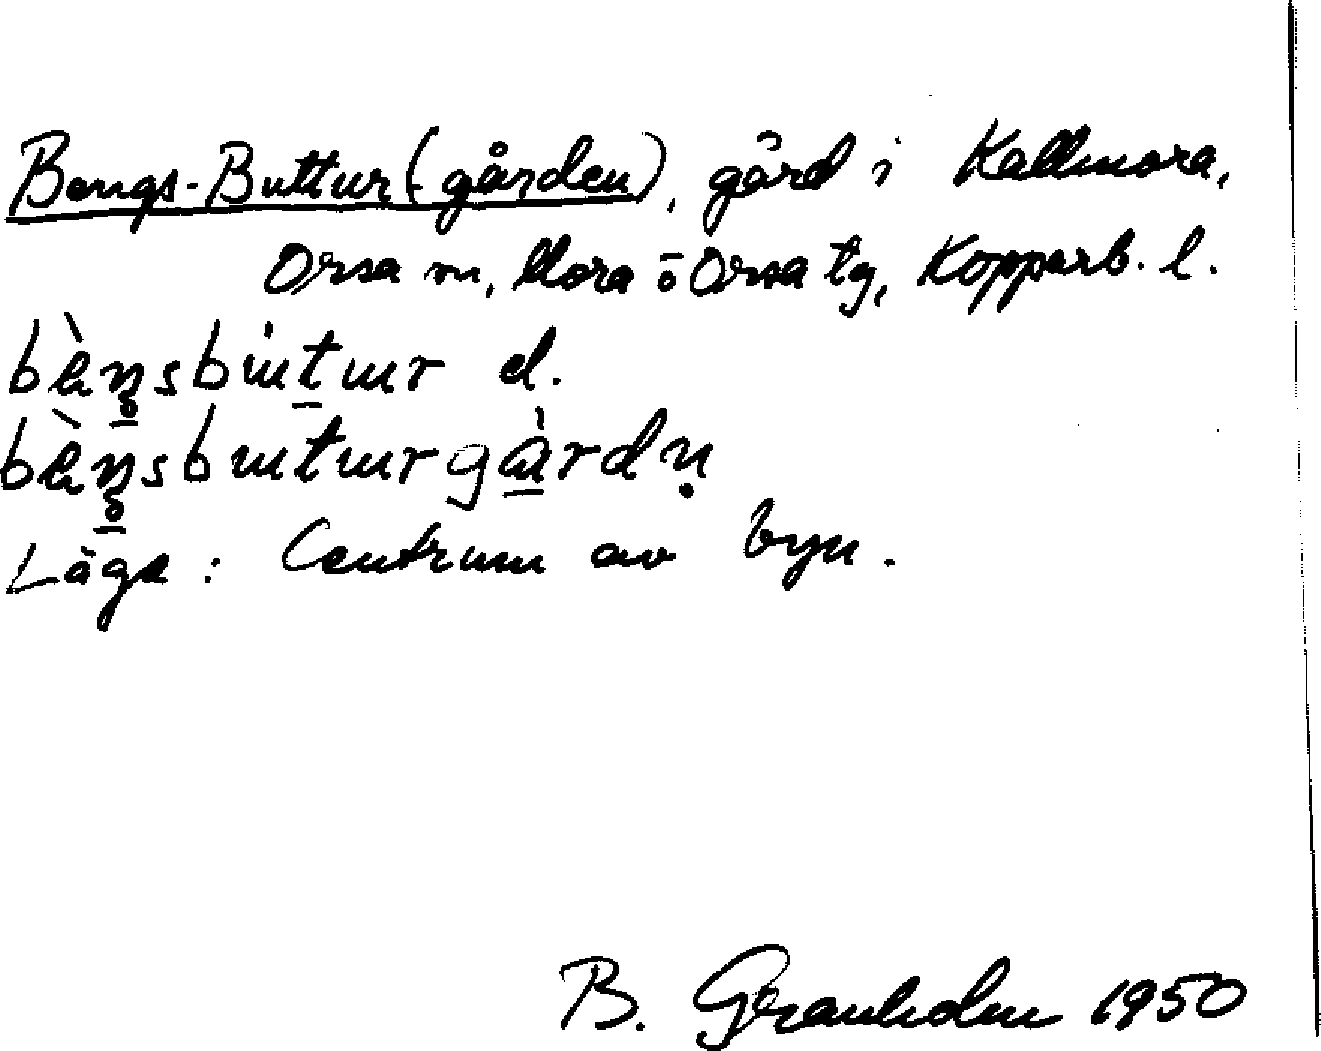 Bengs-Buttur(-gården), gård i Kallmora,
Orsa sn, Mora o Orsa tg, Kopparb. l.
bèŋsbututur el.
bèŋsbututurgàrdn̥
Läge: Centrum av byn.
B. Granholm 1950